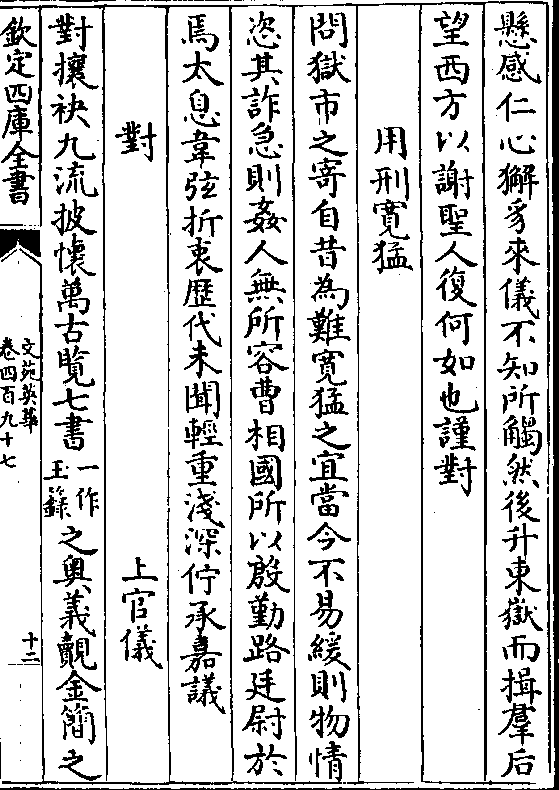 懸感仁心獬豸來儀不知所觸然後升東嶽而揖羣后
望西方以謝聖人復何如也謹對
用刑寛猛
問獄市之寄自昔為難寛猛之宜當今不易緩則物情
恣其詐急則姦人無所容曹相國所以殷勤路廷尉於
焉太息韋弦折衷歴代未聞輕重淺深佇承嘉議
對 上官儀
對攘袂九流披懷萬古覽七書一作玉籙之奥義覿金簡之
欽定四庫全書
文苑英華
卷四百九十七
十二